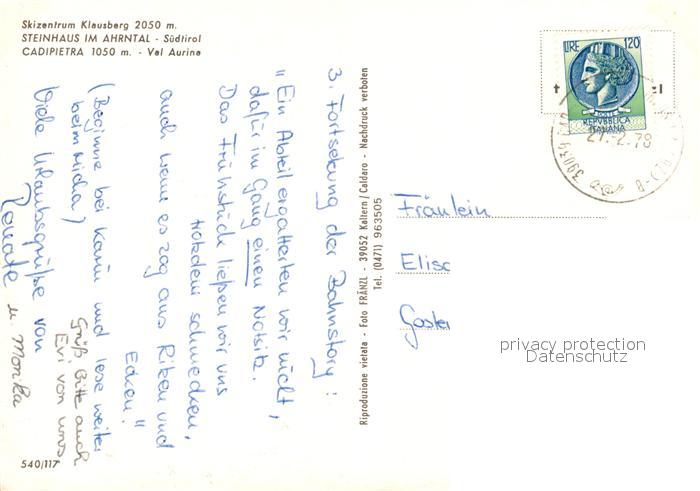 Skizentrum Klausberg 2050 m.
STEINHAUS IM AHRNTAL - Südtirol
CADIPIETRA 1050 m. - Val Aurina
3. Fortsetzung der Bahnstory:
"Ein Abteil ergatterten wir nicht,
dafür im Gang einen Notsitz.
Das Frühstück ließen wir uns
trotzdem schmecken,
auch wenn es zog aus Ritzen und
Ecken."
(Beginne bei Karin und lese weiter
beim Micha)
Viele Urlaubsgrüße von
Renate u. Monika
Grüß bitte auch
Evi von uns
540/117
Riproduzione vietata - Foto FRÄNZL - 39052 Kaltern/Caldaro - Nachdruck verboten
Tel. (0471) 963505
LIRE 120
POSTE
REPVBBLICA
ITALIANA
2.78
Fräulein
Elisc
Goster
privacy protection
Datenschutz